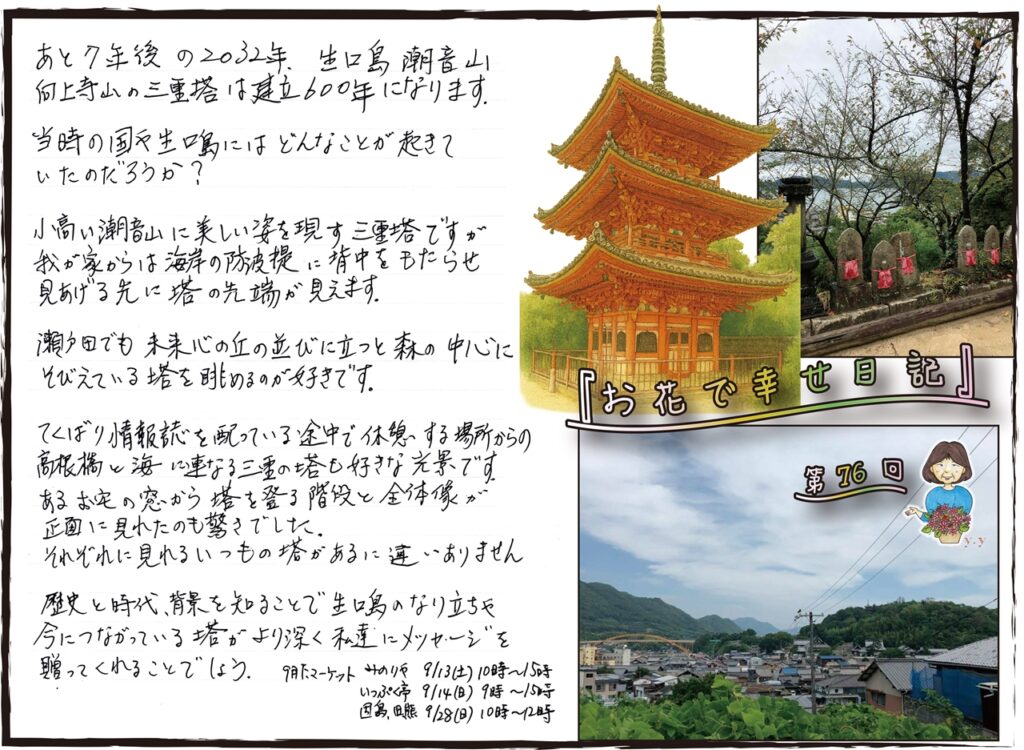 あと7年後の2032年、生口島 潮音山
向上寺山の三重塔は建立600年になります。
当時の国や生口島にはどんなことが起きて
いたのだろうか?
小高い潮音山に美しい姿を現す三重塔ですが
我が家からは海岸の防波堤に背中をもたらせ
見あげる先に塔の先端が見えます。
瀬戸田でも未来心の丘の並びに立つと森の中心に
そびえている塔を眺めるのが好きです。
てくばり情報誌を配っている途中で休憩する場所からの
高根橋と海に連なる三重の塔も好きな光景です
あるお宅の窓から塔を登る階段と全体像が
正面に見れたのも驚きでした。
それぞれに見れるいつもの塔があるに違いありません
歴史と時代、背景を知ることで生口島のなり立ちや
今につながっている塔がより深く私達にメッセージを
贈ってくれることでしょう。
9月たマーケット みのりや 9/13(土)10時〜15時
いっぷく亭 9/14(日)9時〜15時
因島、田熊 9/28(日)10時〜12時
『お花で幸せ日記』
第76回
y.y